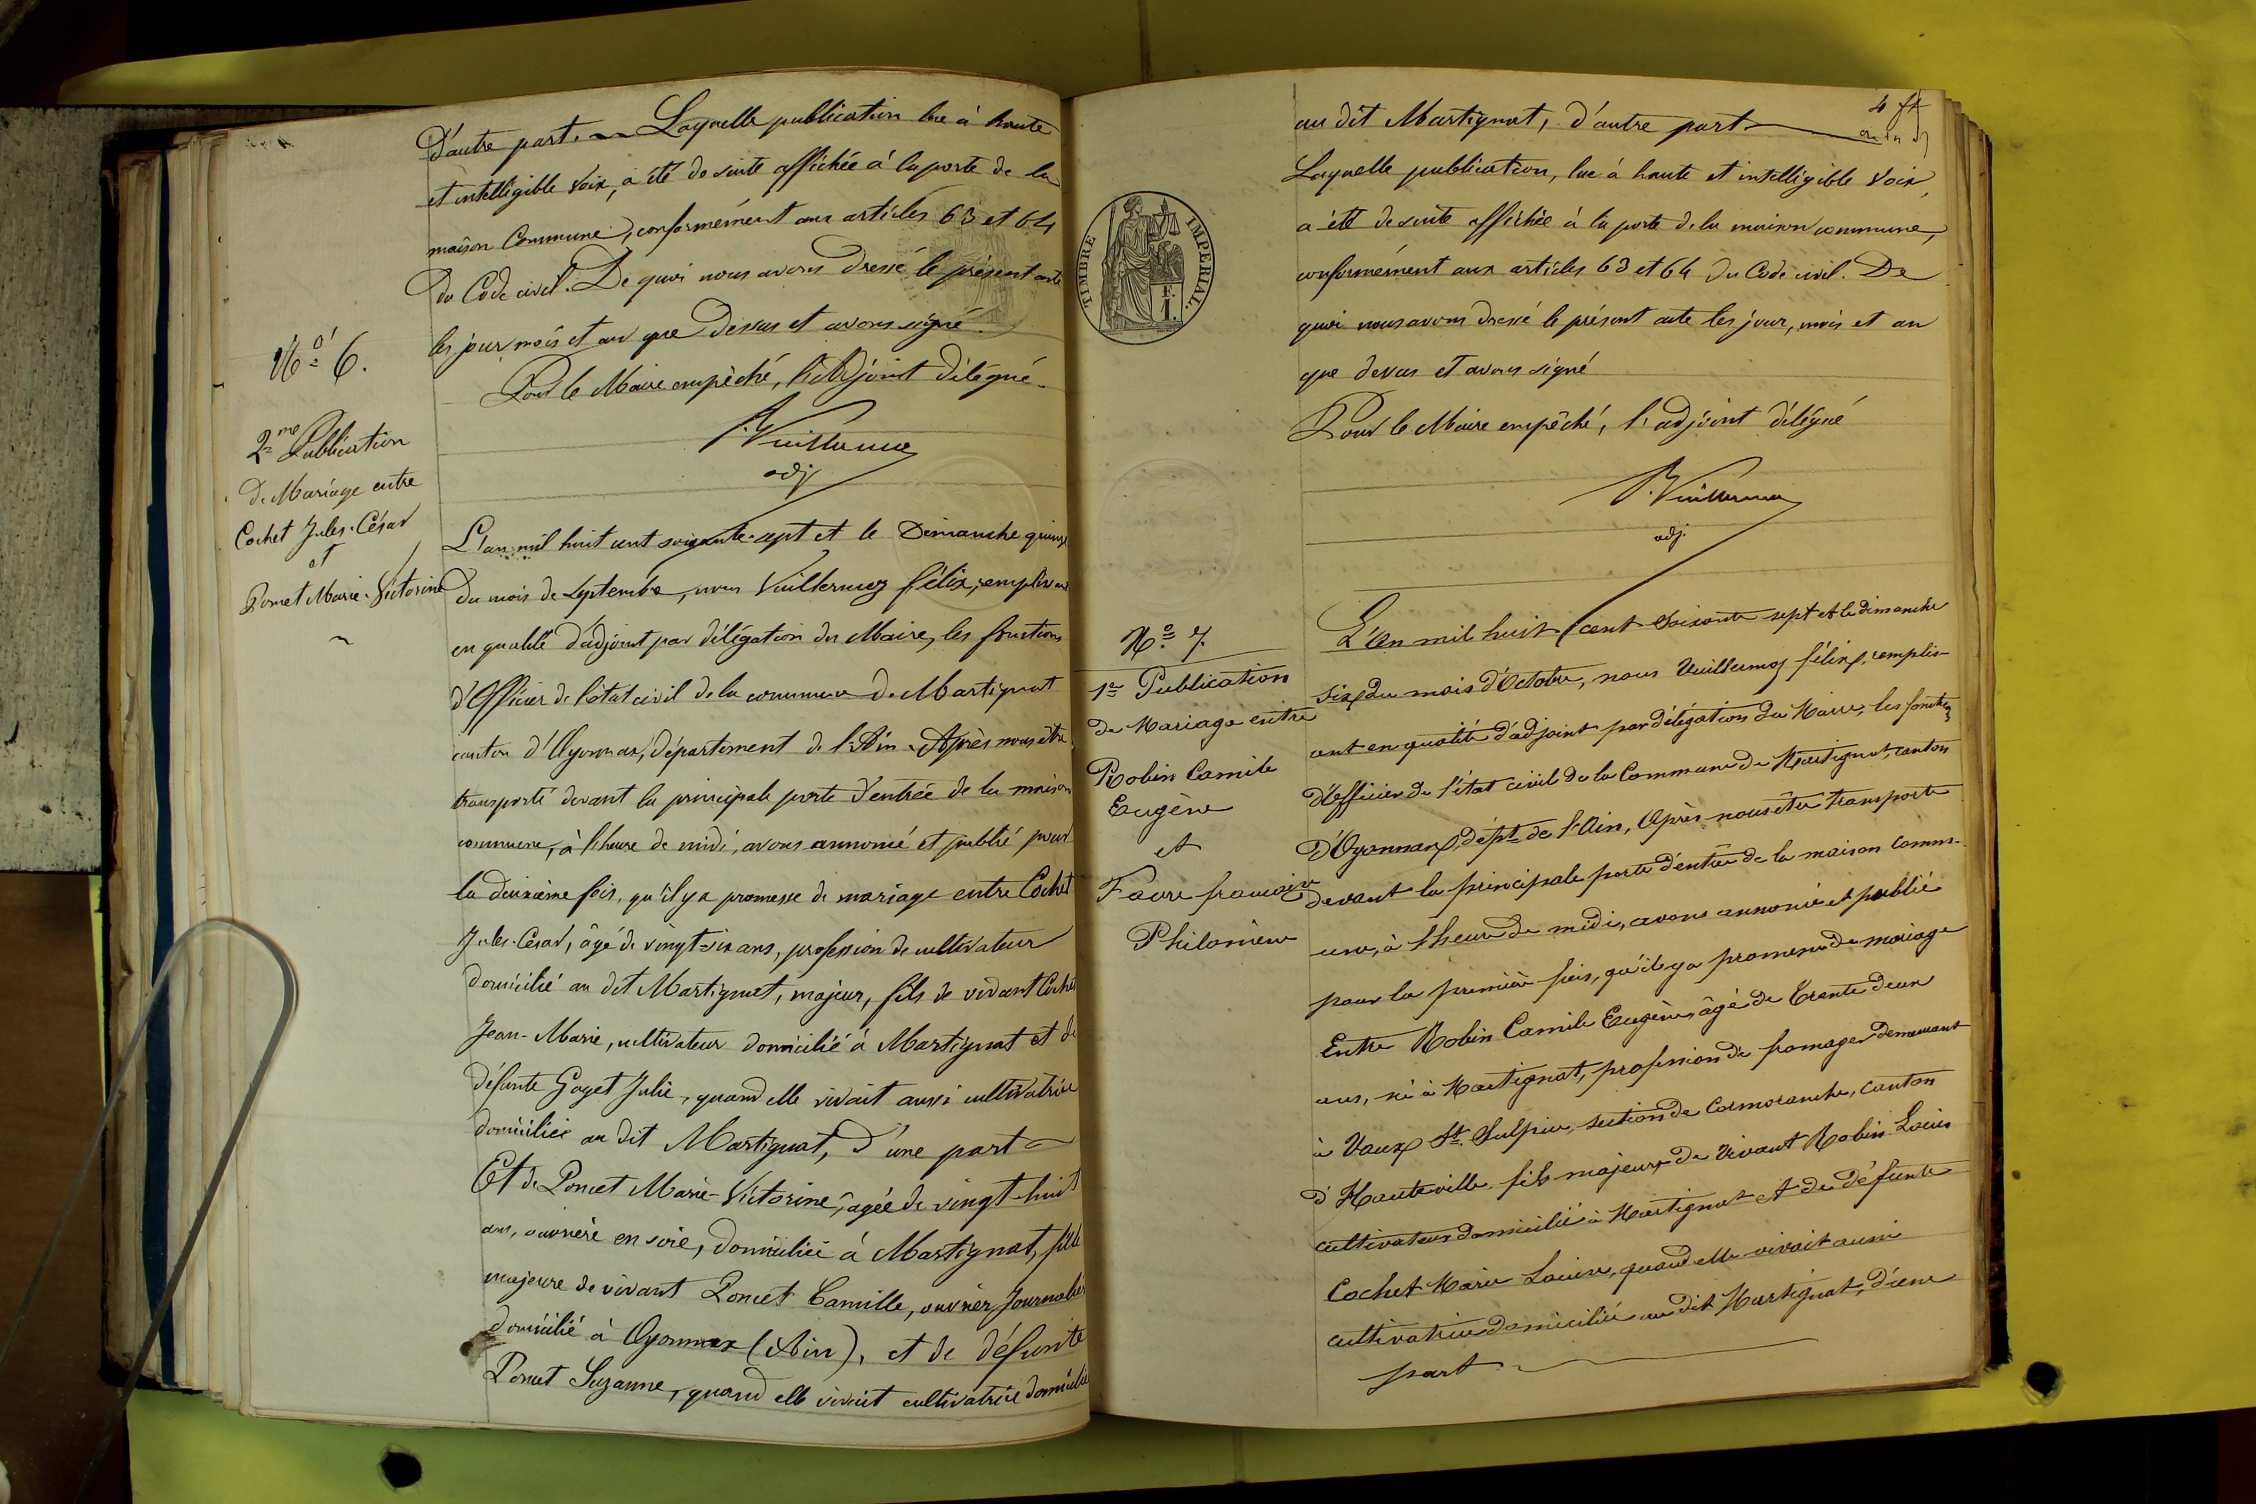 D'autre part. Laquelle publication lue à haute
et intelligible voix, a été de suite affichée à la porte de la
maison Commune, conformément aux articles 63 et 64
du Code civil. De quoi nous avons dressé le présent acte
les jour, mois et an que dessus et avons signé.
Pour le Maire empêché, l'Adjoint délégué.
Vuillermoz
adj
No 6.
2me Publication
de Mariage entre
Cochet Jules-César
et
Poncet Marie-Victorine
L'an mil huit cent soixante-sept et le Dimanche quinze
du mois de Septembre, nous Vuillermoz félix, remplissant
en qualité d'adjoint par délégation du Maire, les fonctions
d'Officier de l'état civil de la commune de Martignat
canton d'Oyonnax, département de l'Ain. Après nous être
transporté devant la principale porte d'entrée de la maison
commune, à l'heure de midi, avons annoncé et publié pour
la deuxième fois, qu'il y a promesse de mariage entre Cochet
Jules-César, âgé de vingt-six ans, profession de cultivateur
domicilié au dit Martignat, majeur, fils de vivant Cochet
Jean-Marie, cultivateur domicilié à Martignat et de
défunte Goyet Julie, quand elle vivait aussi cultivatrice
domiciliée au dit Martignat, d'une part
Et de Poncet Marie-Victorine, âgée de vingt-huit
ans, ouvrière en soie, domiciliée à Martignat, fille
majeure de vivant Poncet Camille, ouvrier journalier
domicilié à Oyonnax (Ain), et de défunte
Poncet Suzanne, quand elle vivait cultivatrice domiciliée
4
au dit Martignat, d'autre part
Laquelle publication, lue à haute et intelligible voix,
a été de suite affichée à la porte de la maison commune,
conformément aux articles 63 et 64 du Code civil. De
quoi nous avons dressé le présent acte les jour, mois et an
que dessus et avons signé
Pour le Maire empêché, l'adjoint délégué
Vuillermoz
adj.
TIMBRE IMPERIAL.
E.
1.
No 7.
1re Publication
de Mariage entre
Robin Camile
Eugène
et
Favre françoise
Philomène
L'an mil huit cent soixante sept et le dimanche
six du mois d'Octobre, nous Vuillermoz félix, remplis-
ant en qualité d'adjoint par délégation du Maire, les fonctions
d'Officier de l'état civil de la Commune de Martignat, canton
D'Oyonnax, dépt de l'Ain, Après nous être transporté
devant la principale porte d'entrée de la maison comm-
une, à l'heure de midi, avons annoncé et publié
pour la première fois, qu'il y a promesse de mariage
Entre Robin Camile Eugène, âgé de trente deux
ans, né à Martignat, profession de fromager demeurant
à Vaux St. Sulpice, section de Cormoranche, canton
d'Hauteville fils majeur de vivant Robin Louis
cultivateur domicilié à Martignat et de défunte
Cochet Marie Louise, quand elle vivait aussi
cultivatrice domiciliée au dit Martignat, d'une
part